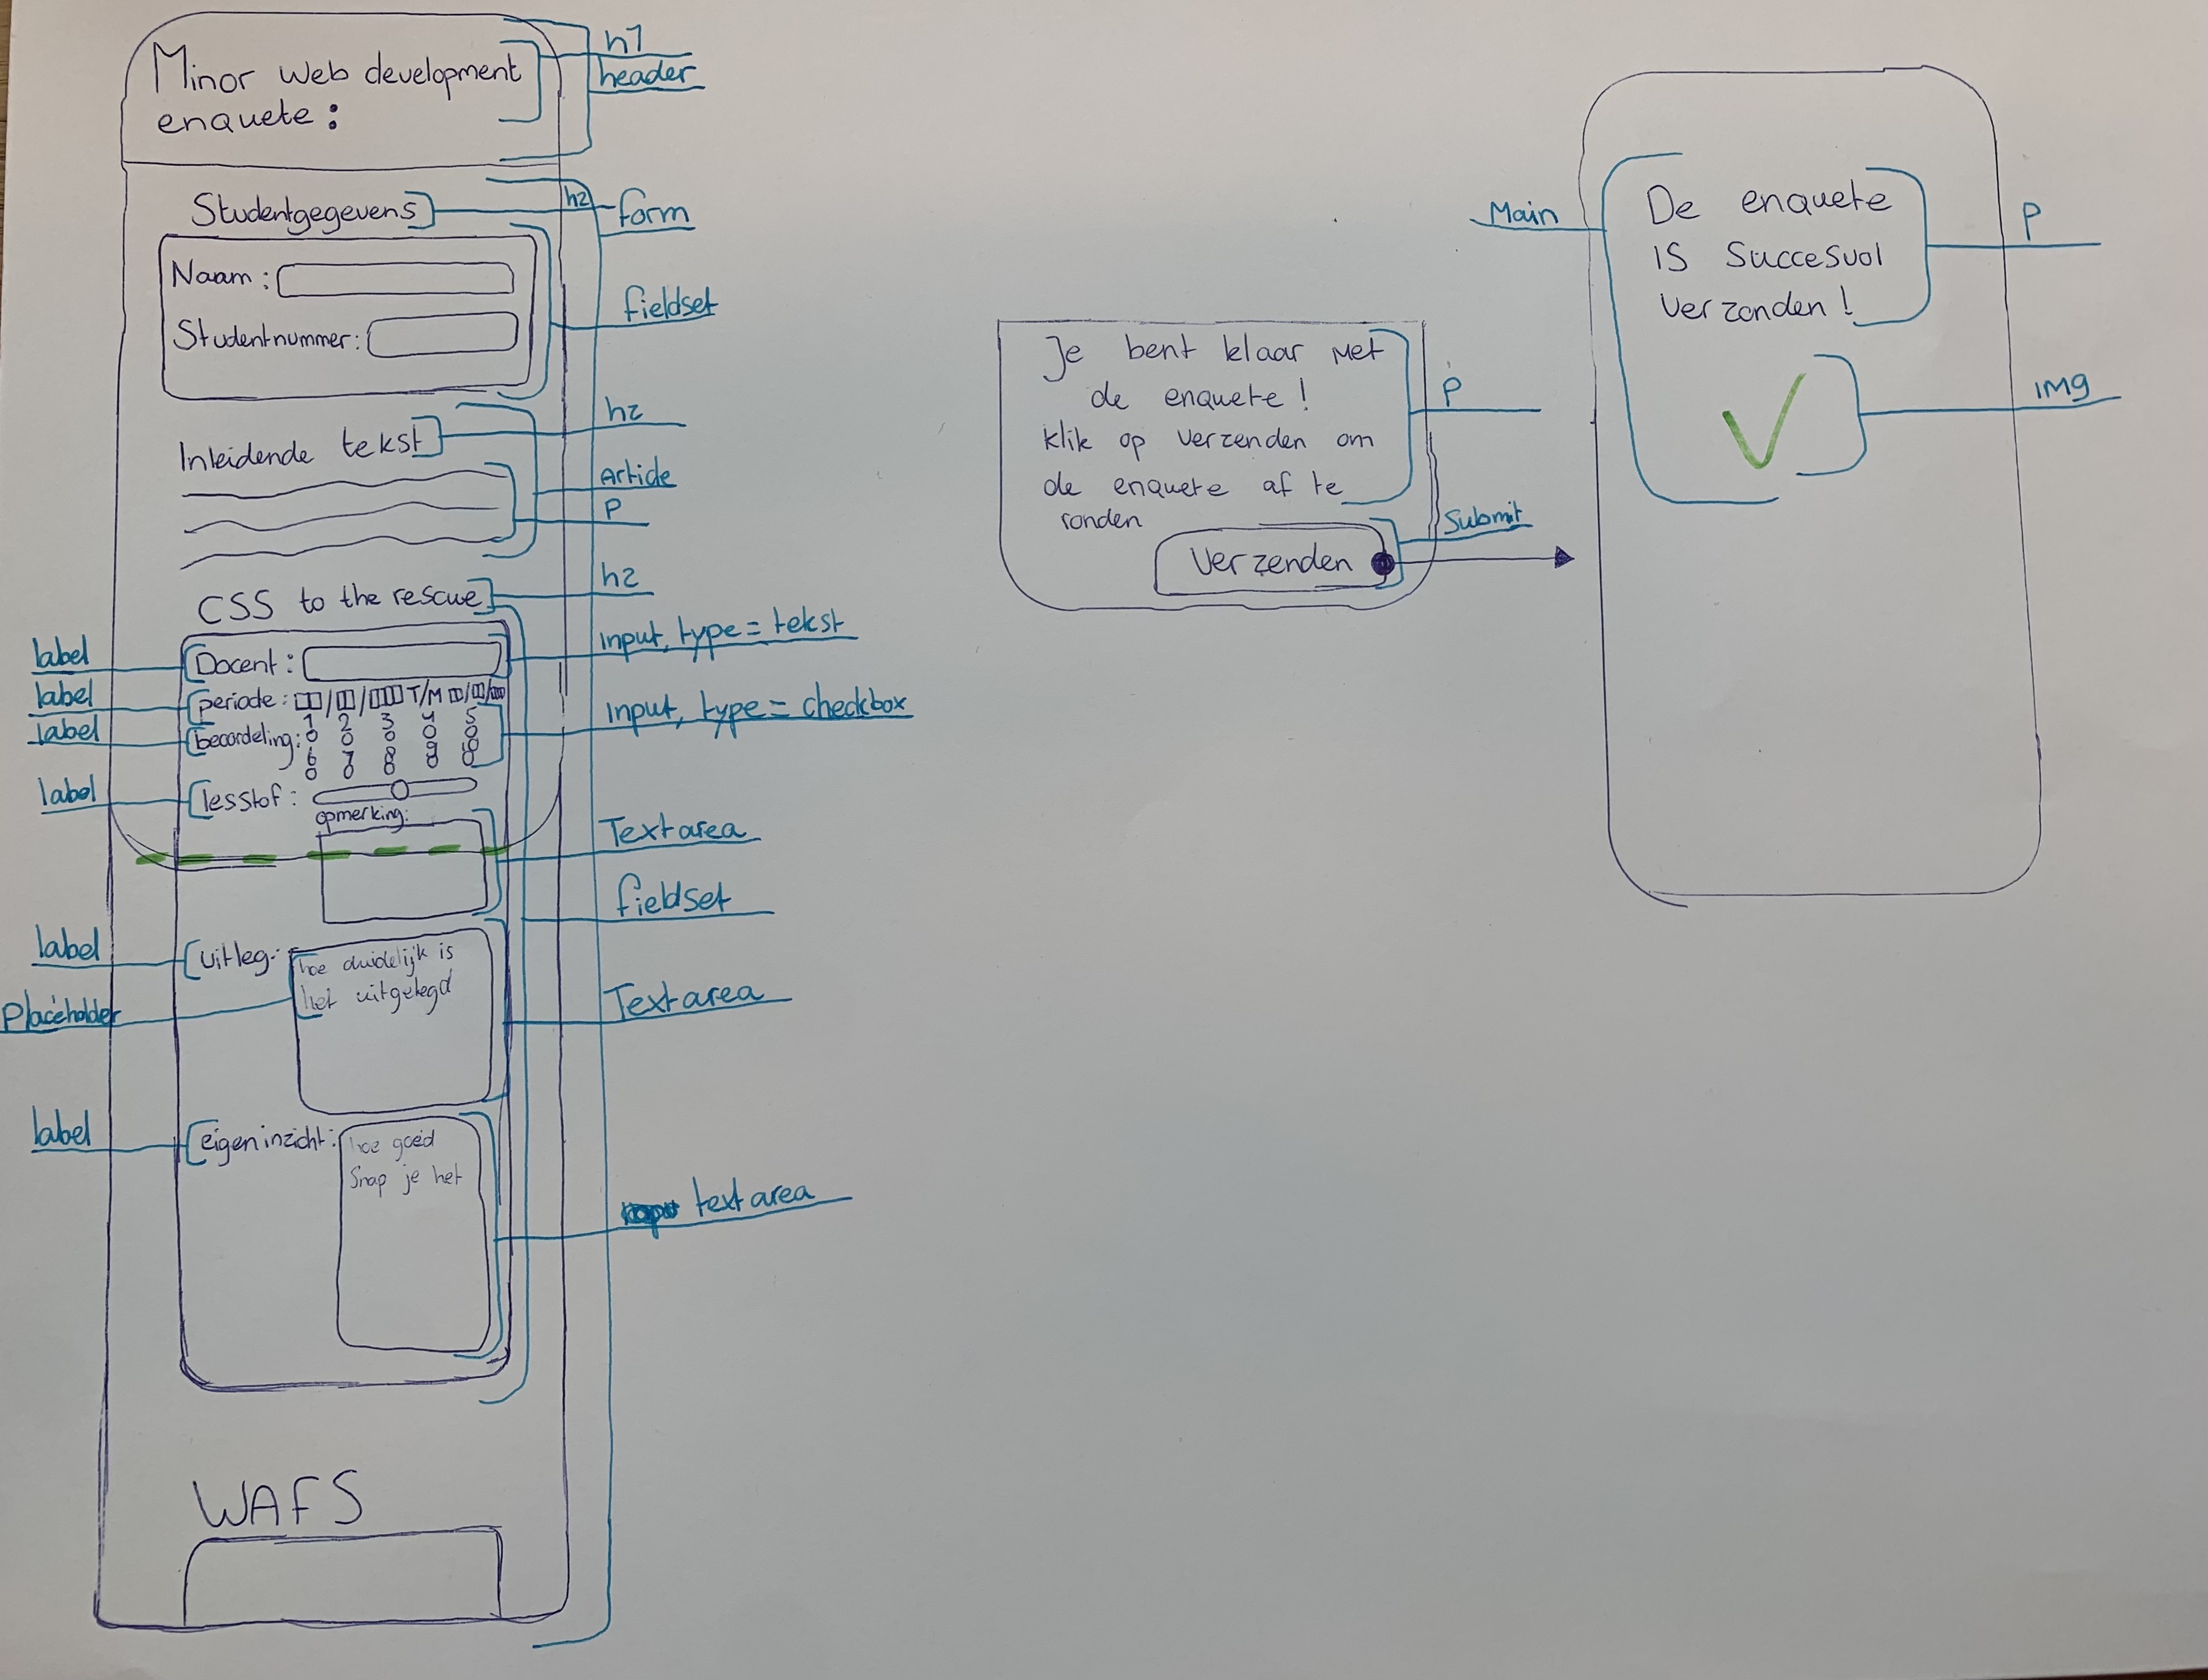 Minor web development
enquete:
h1
header
Studentgegevens
h2
form
Naam:
Studentnummer:
fieldset
Inleidende tekst
h2
Article
P
CSS to the rescue
h2
label
Docent:
input, type= tekst
label
periode: / / T/M / /
label
beoordeling:
1 2 3 4 5
6 7 8 9 10
input, type= checkbox
label
lesstof:
opmerking:
Textarea
fieldset
label
uitleg:
hoe duidelijk is
het uitgelegd
Placeholder
Textarea
label
eigen inzicht:
hoe goed
snap je het
textarea
WAFS
Je bent klaar met
de enquete!
klik op verzenden om
de enquete af te
ronden
P
Verzenden
Submit
Main
De enquete
is succesvol
verzonden!
P
img